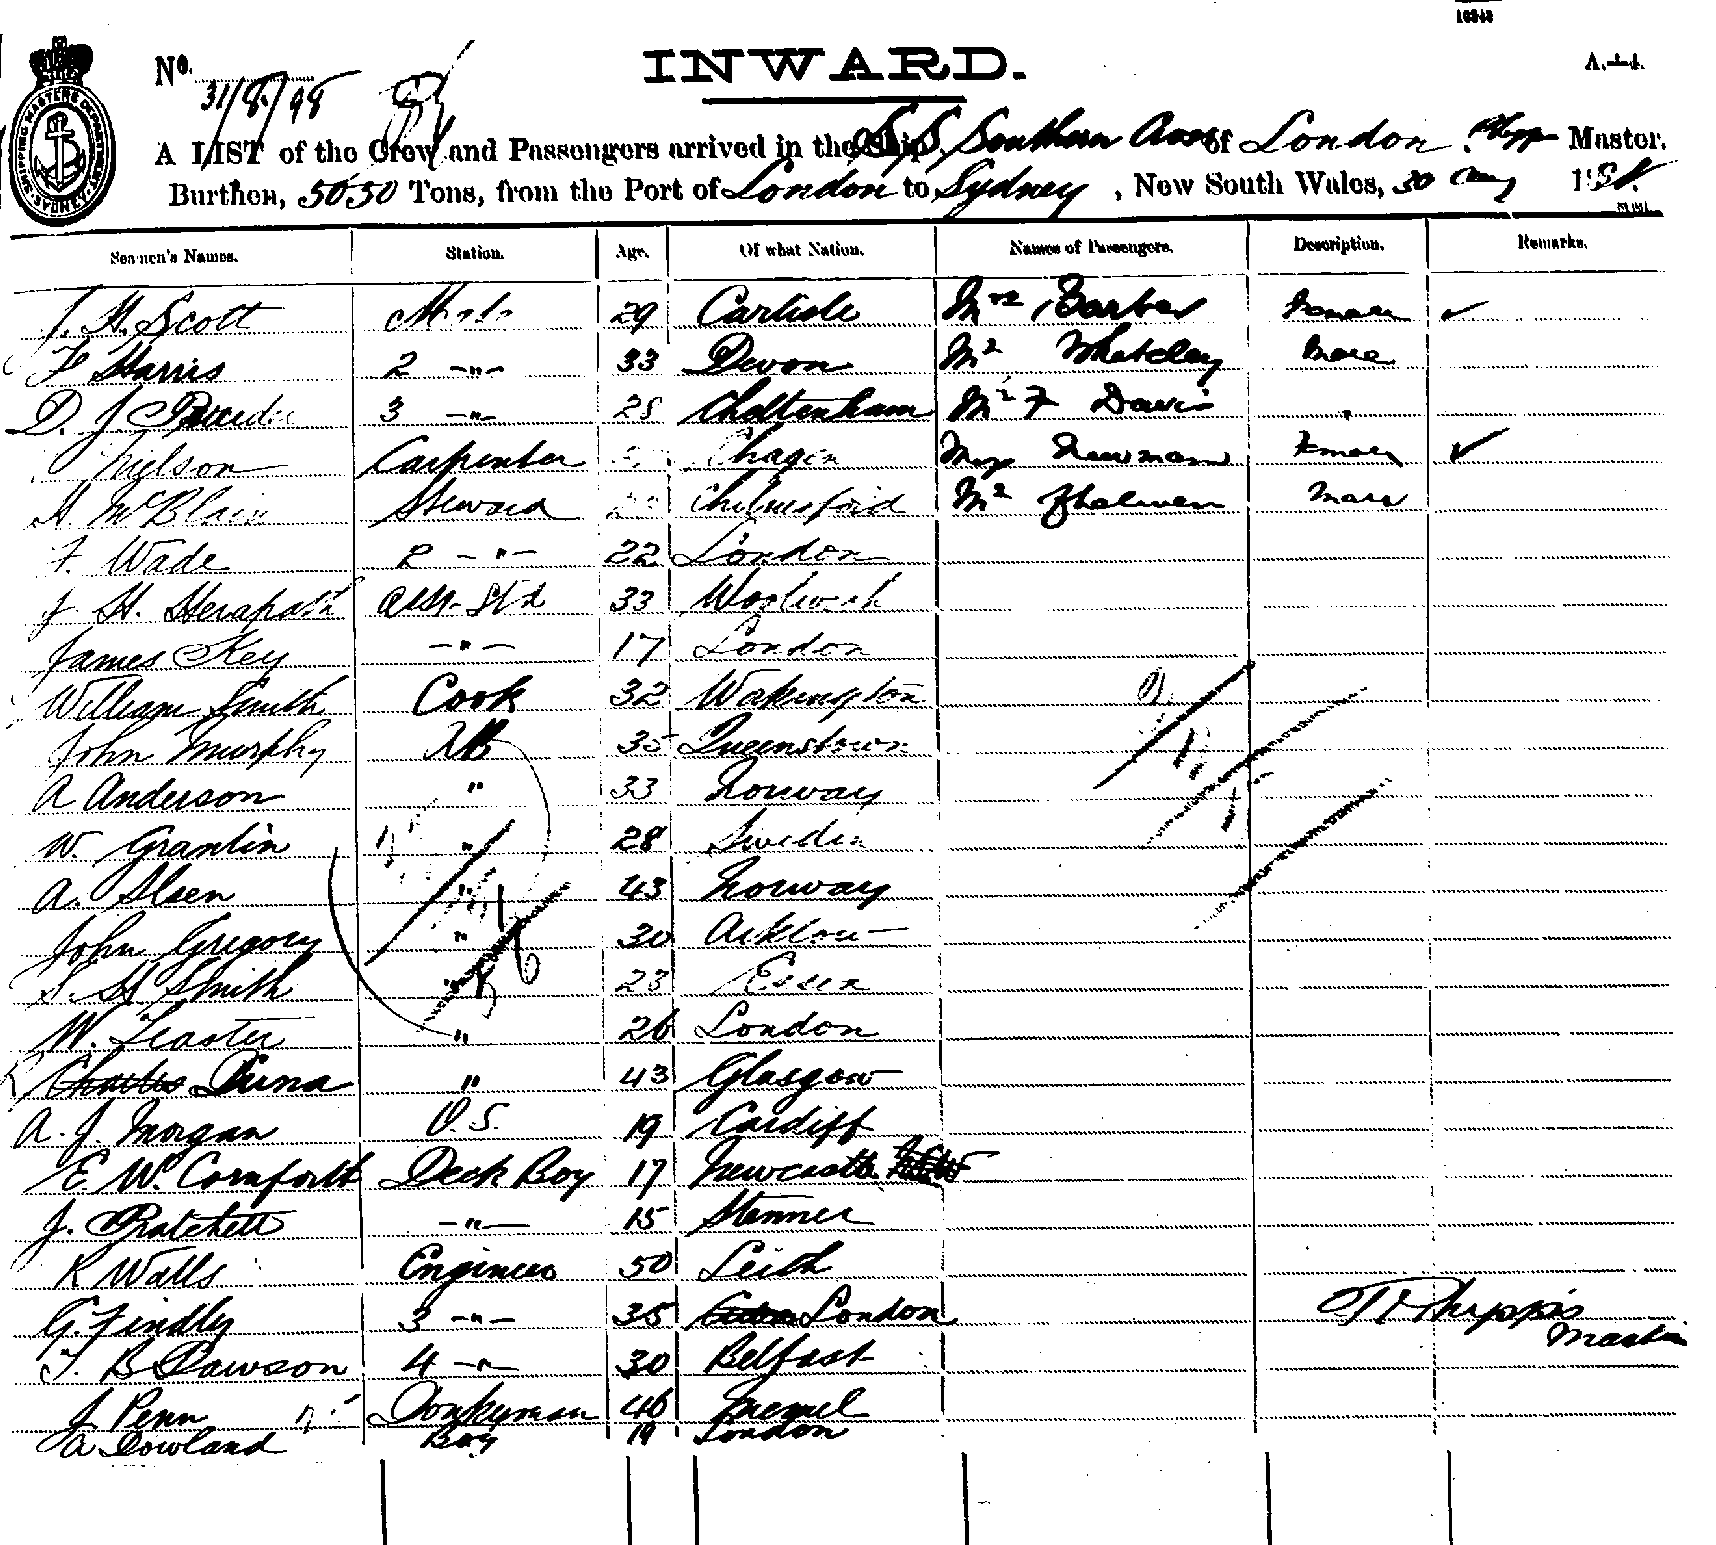 10343
No. 31/8/98
INWARD.
A LIST of the Crew and Passengers arrived in the Ship S.S. Southern Cross of London Master.
Burthen, 5050 Tons, from the Port of London to Sydney, New South Wales, 30 Aug 1898
SHIPPING MASTERS DEPARTMENT SYDNEY
Seamen's Names. Station. Age. Of what Nation. Names of Passengers. Description. Remarks.
J. H. Scott Mate 29 Carlisle Mrs Barber Female ✓
F Harris 2 -"- 33 Devon Mr Whateley Male
D. J. 3 -"- 28 Cheltenham Mr F Davis "
Nielson Carpenter Miss Newman Female ✓
A McBlain Steward Chelmsford Mr Male
F. Wade 2 -"- 22 London
J H. Herapath Asst. Std 33 Woolwich
James Key -"- 17 London
William Smith Cook 32
John Murphy AB 35 Queenstown
A Anderson " 33 Norway
W. Grantin " 28 Sweden
A. Olsen " 43 Norway
John Gregory " 30 Arklow
S. H Smith " 23 Essex
W. " 26 London
Charles " 43 Glasgow
A. J. Morgan O.S. 19 Cardiff
E. W. Cornforth Deck Boy 17 Newcastle NSW
J. Pratchett -"- 15
R Walls Engineer 50 Leith
G. Findly 3 -"- 35 London
T. B Dawson 4 -"- 30 Belfast
J. Penn Donkeyman 46 Memel
A Dowland Boy 19 London
Phipps
Master